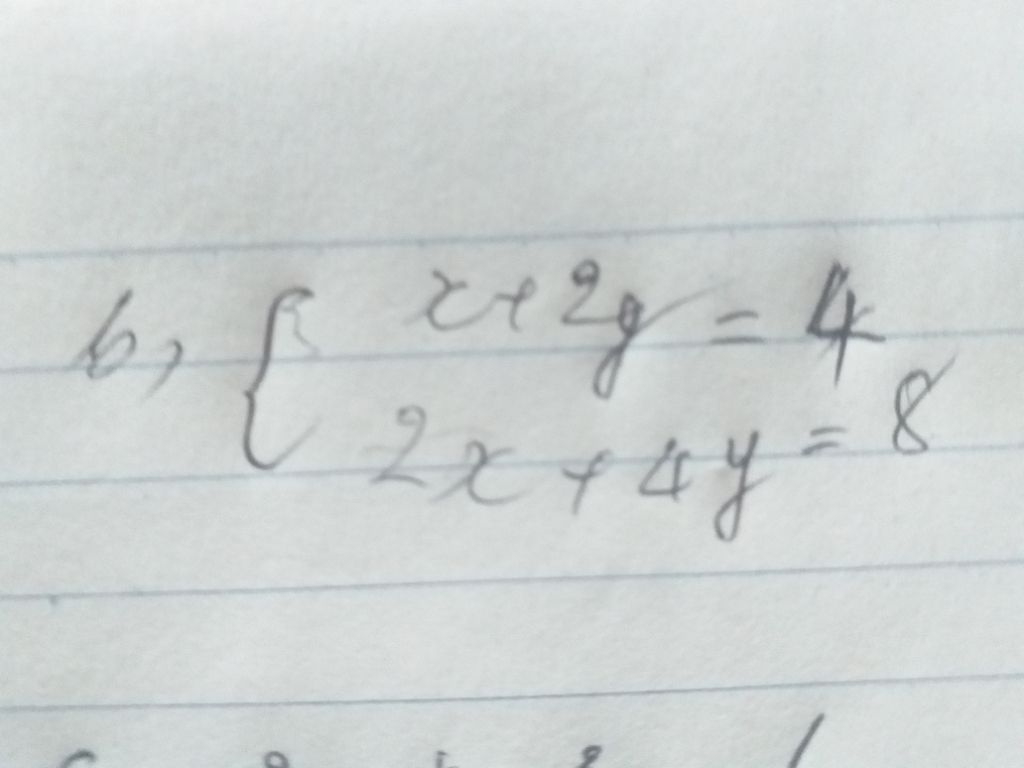 b, { x + 2y = 4
2x + 4y = 8